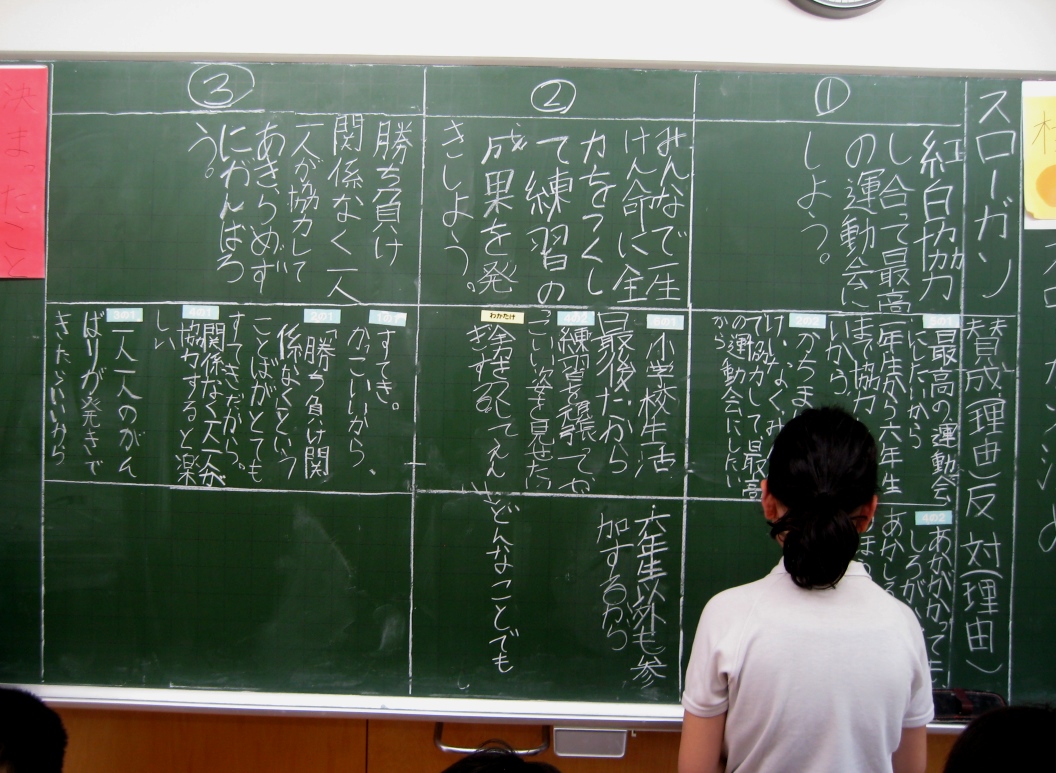 スローガン
賛成(理由)
反対(理由)
①
紅白協力
し合って最高
の運動会に
しよう。
3の1
最高の運動会
にしたいから
一年生から六年生
まで協力
いから
2の2
かちまけ
けいなく、み
て協力して最高
の運動会にしたい
から
4の2
あかがかっても
しろが
あかしろ
②
みんなで一生
けん命に全
力をつくし
て練習の
成果を発
きしよう。
6の1
小学校生活
最後だから
4の2
練習を頑張ってか
っこいい姿を見せたい
わかたけ
六年生以外も参
加するから
どんなことでも
③
勝ち負け
関係なく一人
一人が協力して
あきらめず
にがんばろ
う。
すてき。
かっこいいから、
2の1
「勝ち負け関
係なくという
ことばがとても
すてきだから。
4の1
関係なく一人一人が
協力すると楽
しい
3の1
一人一人のがん
ばりが発きで
きたらいいから
決まったこと